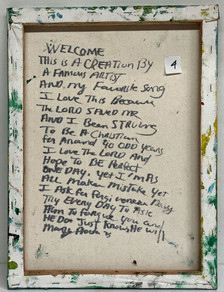 WELCOME
This is A CREATION By
A FAMOUS ARTIST
4
AND my Favorite Song
I Love This Because
The LORD SAVED ME
AND I Been STRUING
To BE A Christian
For Around 90 ODD years
I Love The LORD AND
Hope To BE PerFect
ONE DAY. yet I'm AS
ALL MaKen MisTaKe yet
I ASK For Forgiveness
Try EVERY DAY To ASK
Him To Forgive you and
He Do. Just Know He Will
Many